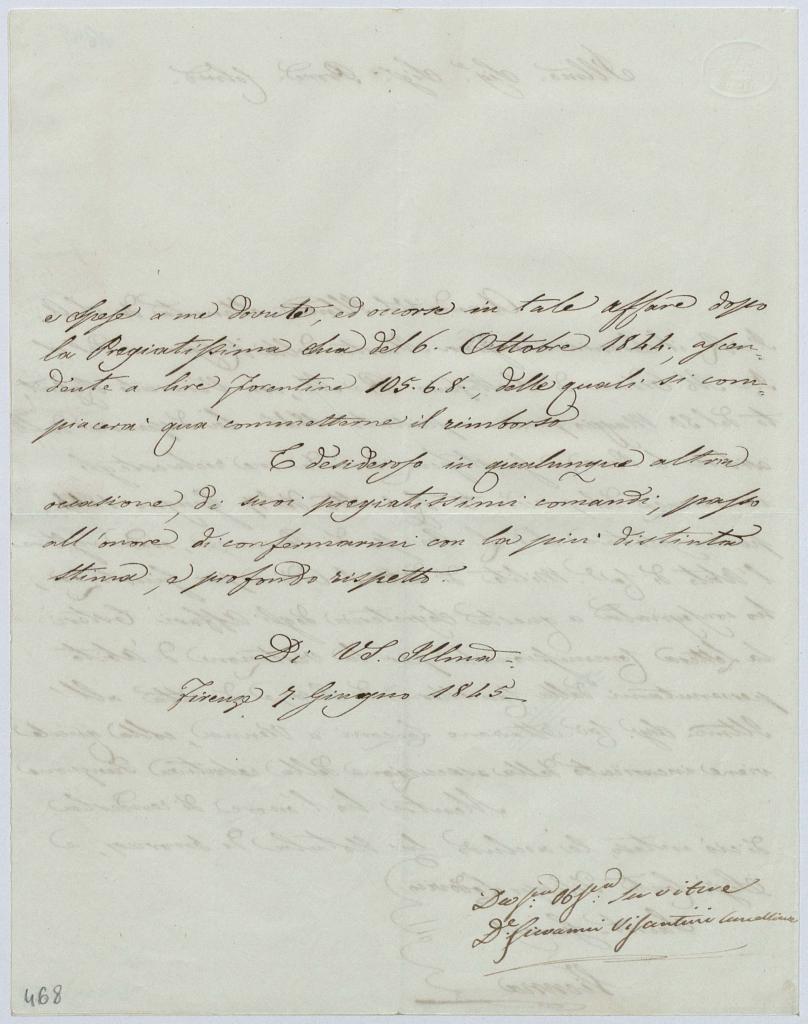 e Spese a me dovute, ed occorse in tale affare dopo
la Pregiatissima Sua del 6. Ottobre 1844, ascen=
dente a lire fiorentine 105. 6. 8., delle quali si com=
piacerà quà commetterne il rimborso
E desideroso in qualunque altra
occasione, di suoi pregiatissimi comandi, passo
all'onore di confermarmi con la più distinta
stima, e profondo rispetto.
Di VS. Illma:
Firenze 7. Giugno 1845
Dev:mo Obb:mo Servitore
D. Giovanni
468